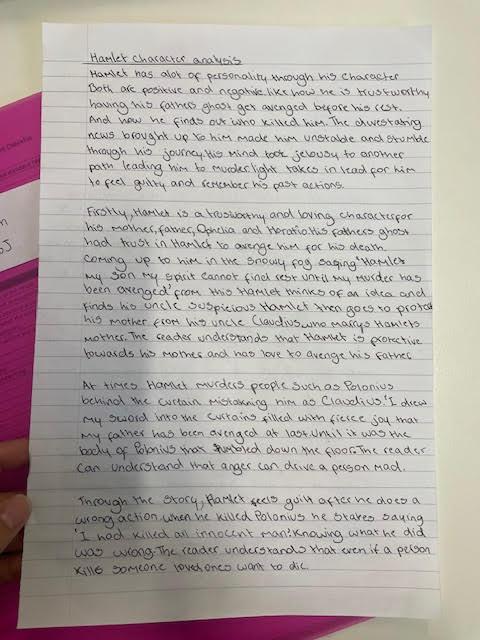 Hamlet character analysis
Hamlet has alot of personality through his character
Both are positive and negative like how he is trustworthy
having his fathers ghost get avenged before his rest.
And how he finds out who killed him. The divestating
news brought up to him made him unstable and stumble
through his journey. His mind took jelousy to another
path leading him to murder light takes in lead for him
to feel guilty and remember his past actions.
Firstly, Hamlet is a trusworthy and loving character for
his mother, father, Ophelia and Horatio. His fathers ghost
had trust in Hamlet to avenge him for his death
coming up to him in the snowy fog saying 'Hamlet
my son my spirit cannot find rest until my murder has
been avenged' from this Hamlet thinks of an idea and
finds his uncle suspicious Hamlet then goes to protect
his mother from his uncle Claudius, who marrys Hamlets
mother. The reader understands that Hamlet is protective
towards his mother and has love to avenge his father
At times Hamlet murders people such as Polonius
behind the curtain mistakning him as Claudius. 'I drew
my sword into the curtains filled with fierce joy that
my father has been avenged at last. Until it was the
body of Polonius that tumbled down the floor. The reader
can understand that anger can drive a person mad.
Through the story, Hamlet feels guilt after he does a
wrong action when he killed Polonius he states saying
'I had killed all innocent man'. Knowing what he did
was wrong. The reader understands that even if a person
kills someone loved ones want to die